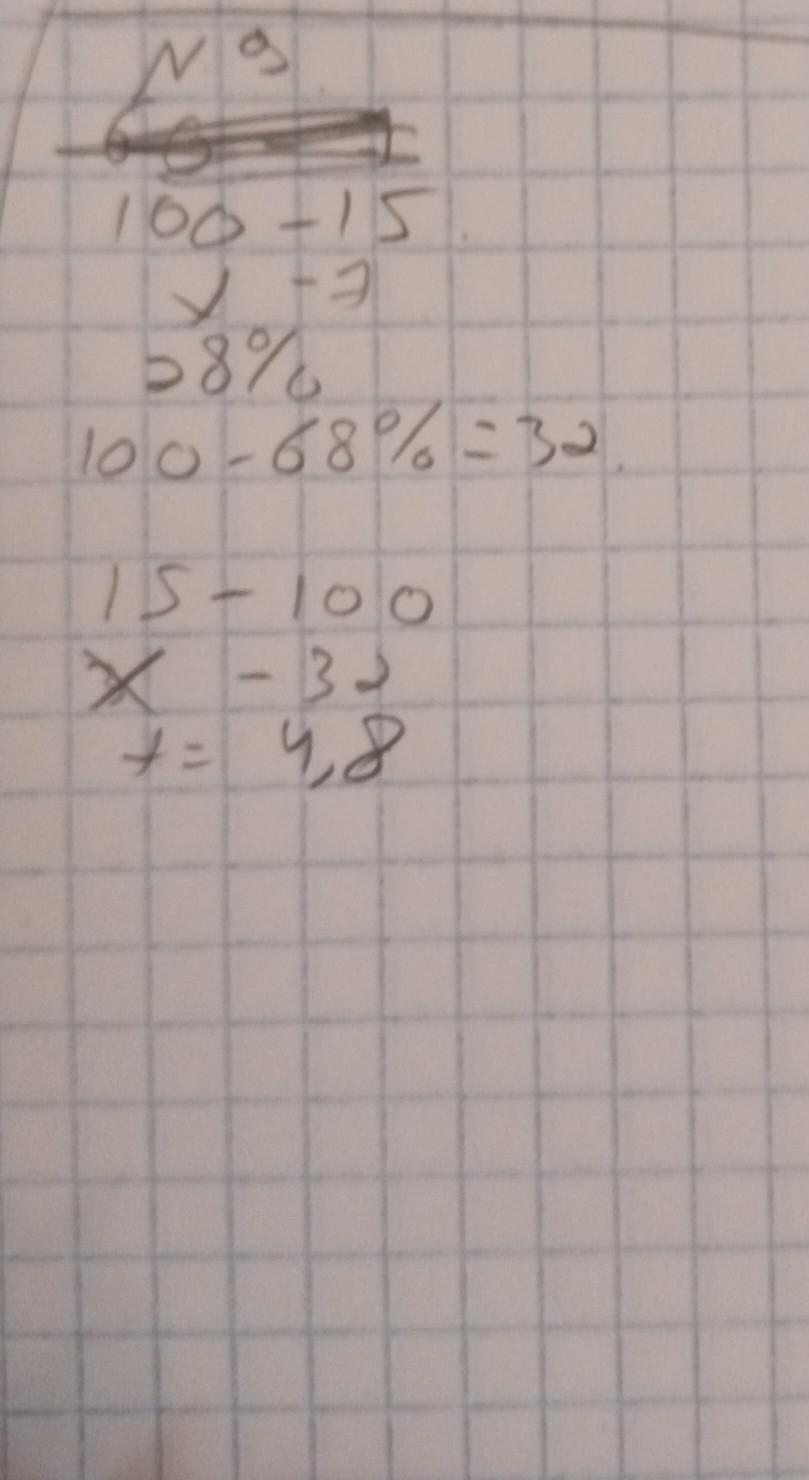 N 9
100 - 15
x - 7
28%
100 - 68% = 32
15 - 100
x - 32
x = 4,8